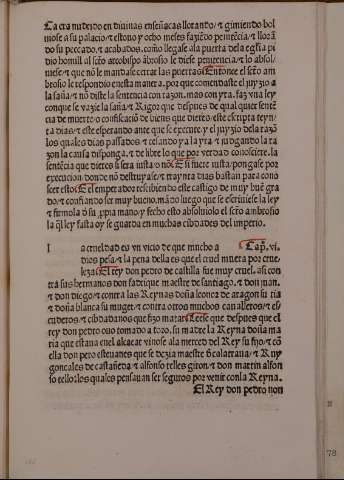 ca era nutrido en diuinas enseñãças llorando ⁊ gimiendo bol
uiose a su palacio ⁊ estouo y ocho meses faziẽdo penitẽcia ⁊ llorã
do su peccado. ⁊ acabados. como llegase ala puerta dela eglia pi
dio homill al señor arçobispo ãbrosio le diese penitencia ⁊ lo absol
uiese ⁊ que no le mandase cerrar las puertas. Entonce el sctõ am
brosio le respondio en esta manera. por que comendaste el juyzio a
la saña ⁊ no diste la sentencia con razon. mas con yra. faz vna ley
con que se vazie la saña ⁊ Rigor que despues de qual quier senten
cia de muerte o confiscaciõ de bienes que dieres ⁊ este escripta treyn
ta dias ⁊ este esperando ante que se execute. y el juyzio dela razõ
los quales dias passados ⁊ celando y a la yra ⁊ juzgando la ra
zon la causa disponga. ⁊ delibre lo que por verdad conosciere. la
sentencia que dieres si sera iusta o no. E si fuere iusta. pongase por
execucion. donde no destruyase ⁊ traynta dias bastan para cono
ser esto. El emperador rescibiendo este castigo de muy buẽ gra
do ⁊ confiando ser muy bueno. mãdo luego que se escriuiese la ley
⁊ firmola õ su ppia mano y fecho esto absoluiolo el sctõ ambrosio
la q̃l ley fasta oy se guarda en muchas cibdades del imperio.
l a crueldad es vn vicio de que mucho a Cap. vi.
dios pesa ⁊ la pena della es que el cruel muera por crue
leza. El rey don pedro de castilla fue muy cruel. asi con
tra sus hermanos don fadrique maestre de santiago. ⁊ don juan.
⁊ don diego ⁊ contra las Reynas doña leonor de aragon su tia
⁊ doña blanca su muger. ⁊ contra otros muchos caualleros ⁊ es
cuderos ⁊ cibdadanos que fizo matar. Leese que despues que el
rey don pedro ouo tomado a toro. su madre la Reyna doña ma
ria que estaua enel alcaçar vinose ala merced del Rey su fijo ⁊ cõ
ella don pero esteuanes que se dezia maestre õ calatraua ⁊ Ruy
gonçales de castañeda ⁊ alfonso telles giron ⁊ don martin alfon
so tello: los quales pensauan ser seguros por venir conla Reyna.
El Rey don pedro non
78